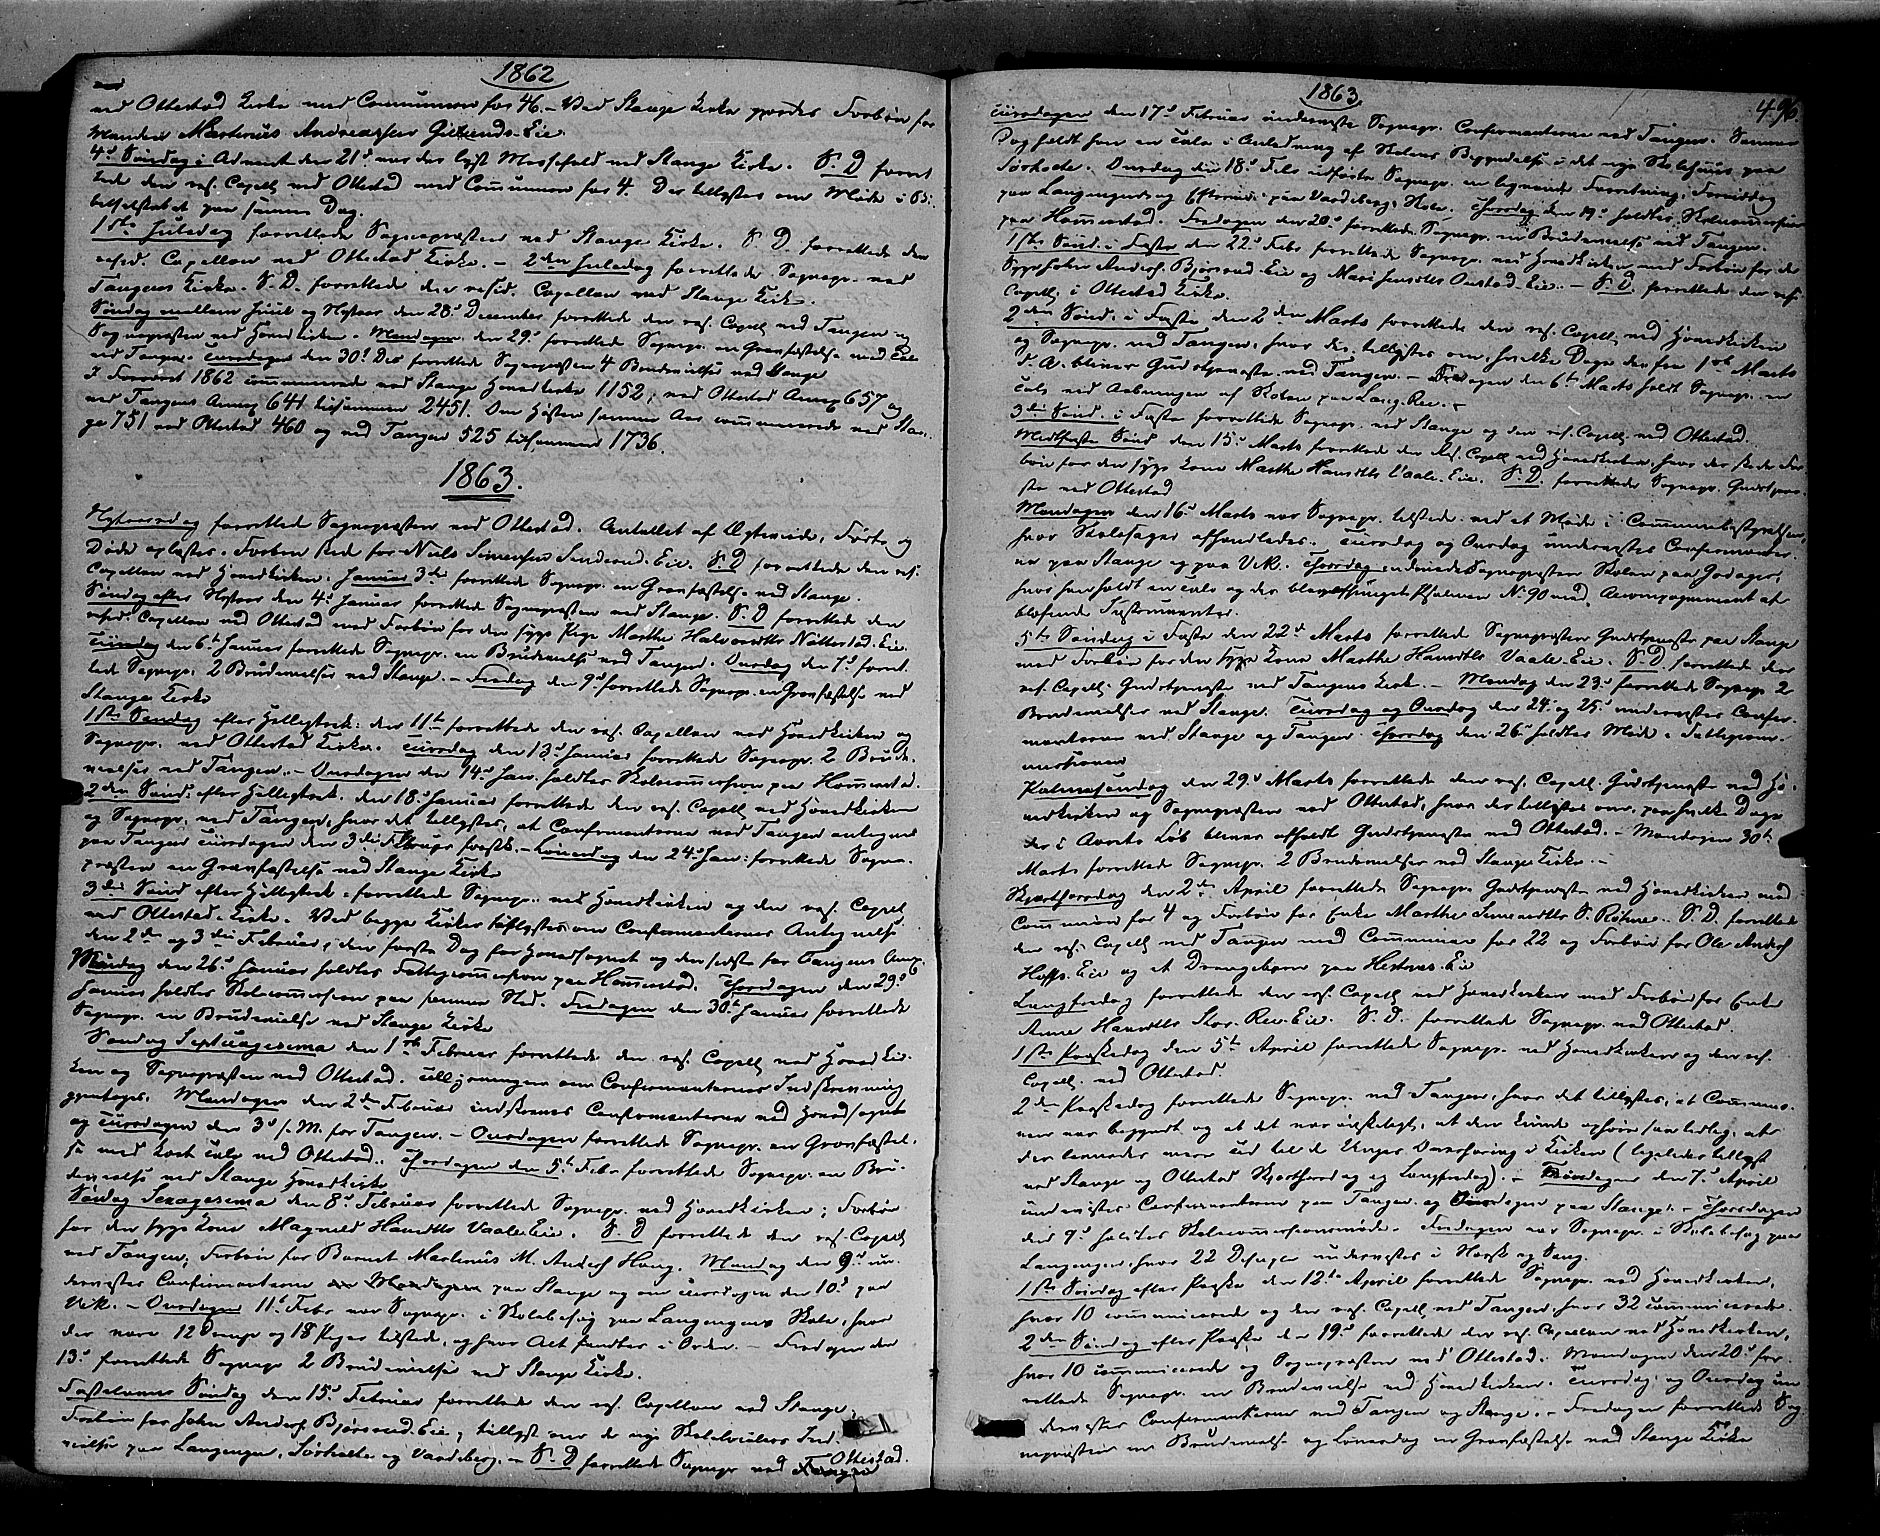 1862
ved Ottestad Kirke med Communion for 46. - Ved Stange Kirke gjordes Forbøn for
Manden Martinus Andreassen Gillunds-Eie
4d Søndag i Advent den 21d var der lyst Messefald ved Stange Kirke. S. D. forret
tede den res. Capell. ved Ottestad med Communion for 4. Der tillystes om Møde i
paa samme Dag.
1ste Juledag forrettede Sognepræsten ved Stange Kirke. S. D. forrettede den
resid. Capellan ved Ottestad Kirke. - 2den Juledag forrettede Sognepr. ved
Tangens Kirke. S. D. forrettede den resid. Capellan ved Stange Kirke.
Søndag mellem Juul og Nytaar den 28d December forrettede den res. Capell. ved Tangen og
Sognepræsten ved Hovedkirken. Mandagen den 29d forrettede Sognepr. en Gravfæstelse med Tale
ved Tangen. Tiirsdagen den 30d Dec forrettede Sognepræsten 4 Brudevielser ved Stange
I Foraaret 1862 communicerede ved Stange Hovedkirke 1152, ved Ottestad Annex 657 og
ved Tangens Annex 641 tilsammen 2451. Om Høsten samme Aar communicerede ved Stan-
ge 751 ved Ottestad 460 og ved Tangen 525 tilsammen 1736.
1863.
Nytaarsdag forrettede Sognepræsten ved Ottestad. Antallet af Ægteviede, Fødte og
Døde oplæstes. Forbøn skede for Niels Simensen Sanderud-Eie. S. D. forrettede den res.
Capellan ved Hovedkirken. Januar 3die forrettede Sognepr. en Gravfæstelse ved Stange.
Søndag efter Nytaar den 4d Januar forrettede Sognepræsten ved Stange. S. D. forrettede den
resid. Capellan ved Ottestad med Forbøn for den syge Pige Marthe Halvorsdtr Nøttestad-Eie.
Tiirsdag den 6te Januar forrettede Sognepr. en Brudevielse ved Tangen. Onsdag den 7d forret-
tede Sognepr. 2 Brudevielser ved Stange. - Fredag den 9d forrettede Sognepr. en Gravfæstelse ved
Stange Kirke
1ste Søndag efter Helligtrek. den 11te forrettede den res. Capellan ved Hovedkirken og
Sognepr. ved Ottestad Kirke. Tiirsdag den 13d Januar forrettede Sognepr. 2 Brude-
vielser ved Tangen. - Onsdagen den 14d Jan. holdtes Skolecommission paa Hommerstad.
2den Sønd. efter Helligtrek. den 18d Januar forrettede den res. Capell. ved Hovedkirken
og Sognepr. ved Tangen, hvor det tillystes, at Confirmanterne ved Tangen antegnes
paa Tangen Tiirsdagen den 3die Februar førstk. - Løverdag den 24d Jan: forrettede Sogne-
præsten en Gravfæstelse ved Stange Kirke
3die Sønd. efter Helligtrek. forrettede Sognepr. ved Hovedkirken og den res. Capell.
ved Ottestad-Kirke. Ved begge Kirker tillystes om Confirmanternes Antegnelse
den 2den og 3die Februar, den første Dag for Hovedsognet og den sidste for Tangens Annex
Mandag den 26d Januar holdtes Fattigcommission paa Hommerstad. Thorsdagen den 29d
Januar holdtes Skolecommission paa samme Sted. Fredagen den 30te Januar forrettede
Sognepr. en Brudevielse ved Stange Kirke
Søndag Septuagesima den 1ste Februar forrettede den res. Capell. ved Hovedkir-
ken og Sognepræsten ved Ottestad. om Confirmanternes Indskrivning
gjentoges. Mandagen den 2den Februar indskreves Confirmanterne ved Hovedsognet
og Tiirsdagen den 3d s. M. for Tangen. - Onsdagen forrettede Sognepr. en Gravfæstel-
se med kort Tale ved Ottestad. Thorsdagen den 5te Febr. forrettede Sognepr. en Bru-
devielse ved Stange Hovedkirke
Søndag Sexagesima den 8d Februar forrettede Sognepr. ved Hovedkirken; Forbøn
for den syge Kone Magnild Hansdtr Vaale-Eie. S. D. forrettede den res. Capell.
ved Tangen; Forbøn for Barnet Martinus M. Anders Haug. Mandag den 9d un-
dervistes Confirmanterne paa Stange og om Tiirsdagen den 10d paa
Vik. - Onsdagen 11te Febr. var Sognepr. i Skolebesøg paa Langengens Skole, hvor
der vare 12 Drenge og 18 Piger tilstede, og hvor Alt fandtes i Orden. - Fredagen den
13d forrettede Sognepr. 2 Brudevielser ved Stange Kirke.
Fastelavns Søndag den 15d Februar forrettede den res. Capellan ved Stange;
Forbøn for John Anders Bjørnerud-Eie; tillyst om de nye Skolelocalers Ind-
vielse paa Langengen, Sørholte og Vardeberg. - S. D. forrettede Sognepr. ved Ottestad.
1863
496
Tiirsdagen den 17d Februar underviste Sognepr. Confirmanterne ved Tangen. Samme
Dag holdt han en Tale i Anledning af Skolens Begyndelse i det nye Skolehuus paa
Sørholte. Onsdag den 18d Febr. udførte Sognepr. en lignende Forretning, Formiddag
paa Langengen og Efterm. paa Vardebergs Skole. Thorsdag den 19d holdtes Skolecommission
paa Hommerstad. Fredagen den 20d forrettede Sognepr. en Brudevielse ved Tangen.
1ste Sønd. i Faste den 22d Febr. forrettede Sognepr. ved Hovedkirken med Forbøn for de
Syge John Anders. Bjørnerud-Eie og Mari Jensdtr Onsstad-Eie. - S. D. forrettede den res.
Capell. i Ottestad Kirke.
2den Sønd. i Faste den 2den Marts forrettede den res. Capell. ved Hovedkirken
og Sognepr. ved Tangen, hvor der tillystes om, hvilke Dage der fra 1ste Marts
d. A. bliver Gudstjeneste ved Tangen. - Fredagen den 6te Marts holdt Sognepr. en
Tale ved Aabningen af Skolen paa Lang-Rev. -
3die Sønd. i Faste forrettede Sognepr. ved Stange og den res. Capell. ved Ottestad.
Midfaste Sønd. den 15d Marts forrettede den Res. Capell. ved Hovedkirken, hvor der skede For-
bøn for den syge Kone Marthe Hansdtr Vaale-Eie. S. D. forrettede Sognepr. Gudstjene-
ste ved Ottestad
Mandagen den 16d Marts var Sognepr. tilstede ved et Møde i Communebestyrelsen,
hvor Skolesager afhandledes. Tiirsdag og Onsdag undervistes Confirmanter-
ne paa Stange og paa Vik. Thorsdag indviede Sognepræsten Skolen paa Godager,
hvor han holdt en Tale og der blev afsunget Psalmen No. 90 med Accompagnement af
blæsende Instrumenter.
5te Søndag i Faste den 22d Marts forrettede Sognepræsten Gudstjeneste paa Stange
med Forbøn for den syge Kone Marthe Hansdtr Vaale-Eie. S. D. forrettede den
res. Capell. Gudstjeneste ved Tangens Kirke. - Mandag den 23d forrettede Sognepr. 2
Brudevielser ved Stange. Tiirsdag og Onsdag den 24. og 25d undervistes Confir-
manterne ved Stange og Tangen. Thorsdag den 26d holdtes Møde i Fattigcom-
missionen
Palmesøndag den 29d Marts forrettede den res. Capell. Gudstjeneste ved Ho-
vedkirken og Sognepræsten ved Ottestad, hvor der tillystes om, paa hvilke Dage
der i Aarets Løb bliver afholdt Gudstjeneste ved Ottestad. - Mandagen 30te
Marts forrettede Sognepr. 2 Brudevielser ved Stange Kirke. -
Skjærthorsdag den 2den April forrettede Sognepr. Gudstjeneste ved Hovedkirken med
Communion for 4 og Forbøn for Enke Marthe Simensdtr S. Røhne. S. D. forrettede
den res. Capell. ved Tangen med Communion for 22 og Forbøn for Ole Anders
Hoffs-Eie og et Drengebarn paa Hestnes-Eie
Langfredag forrettede den res. Capell. ved Hovedkirken med Forbøn for Enke
Anne Hansdtr Stor-Rev-Eie. S. D. forrettede Sognepr. ved Ottestad.
1ste Paaskedag den 5te April forrettede Sognepr. ved Hovedkirken og den res.
Capell. ved Ottestad.
2den Paaskedag forrettede Sognepr. ved Tangen, hvor det tillystes, at Commu-
nion var begyndt og at det var ønskeligt, at den kunde ophøre saa betids, at
der levnedes mere Tid til de Unges Overhøring i Kirken (ligeledes tillyst
ved Stange og Ottestad Skjærthorsdag og Langfredag). - Tiirsdagen den 7d April
undervistes Confirmanterne paa Tangen og Onsdagen paa Stange. - Thorsdagen
den 9d holdtes Skolecommissionsmøde. Fredagen var Sognepr. i Skolebesøg paa
Langengen, hvor 22 Drenge undervistes i Norsk og Sang.
1ste Søndag efter Paaske den 12te April forrettede Sognepr. ved Hovedkirken,
hvor 10 communicerede og den res. Capell. ved Tangen, hvor 32 communicerede.
2den Søndag efter Paaske den 19d forrettede den res. Capellan ved Hovedkirken,
hvor 10 communicerede og Sognepræsten ved Ottestad. Mandagen den 20d for-
rettede Sognepr. en Brudevielse ved Hovedkirken. Tiirsdag og Onsdag un-
dervistes Confirmanterne ved Tangen og Stange. - Fredagen forrettede Sog-
nepræsten en Brudevielse og Løverdag en Gravfæstelse ved Stange Kirke